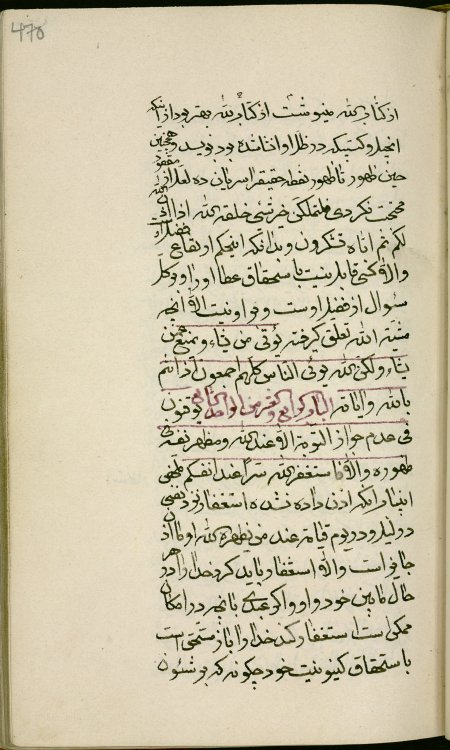 478
از کتاب الله مینوشت از کتاب الله بهتر بود از اینکه
انجیل و کتبیکه در ظل او انشا شده بود و همچنین
حین ظهور تا ظهور نقطه حقیقت
محتجب نکردی فلتملکن خیر شئ خلقه الله
لکم ثم ایاه تشکرون و بدانکه اینحکم ارتفاع
والا کسی قابل نیست باستحقاق عطا او را و کل
سئوال از فضل اوست و نیست الا آنچه
مشیة الله تعلق گرفته یؤتی من یشاء و یمنع عمن
یشاء ولکن الله یؤتی الناس کلهم اجمعون اذا انتم
بالله و ایاته توقنون الباب الرابع والعشر من الواحد السابع
فی عدم جواز التوبة الا عند الله و مظهر نفسه فی
ظهوره والا فاستغفر الله سرا عند انفسکم ملخص
این باب آنکه اذن داده نشده استغفار نزد نفسی
در لیل و در یوم قیامة عند من یظهره الله او ما اذن
جایز است والا استغفار باید کرد خدا را در هر
حال مابین خود و او و اگر عبدی بآنچه در امکان
ممکن است استغفار کند خدا را باز مستحق است
باستحقاق کینونیت خود چگونه که بر شئون